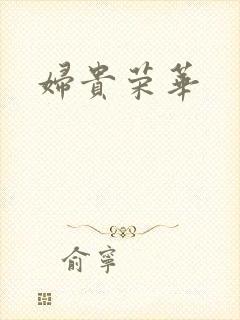 婦貴荣華
俞寧